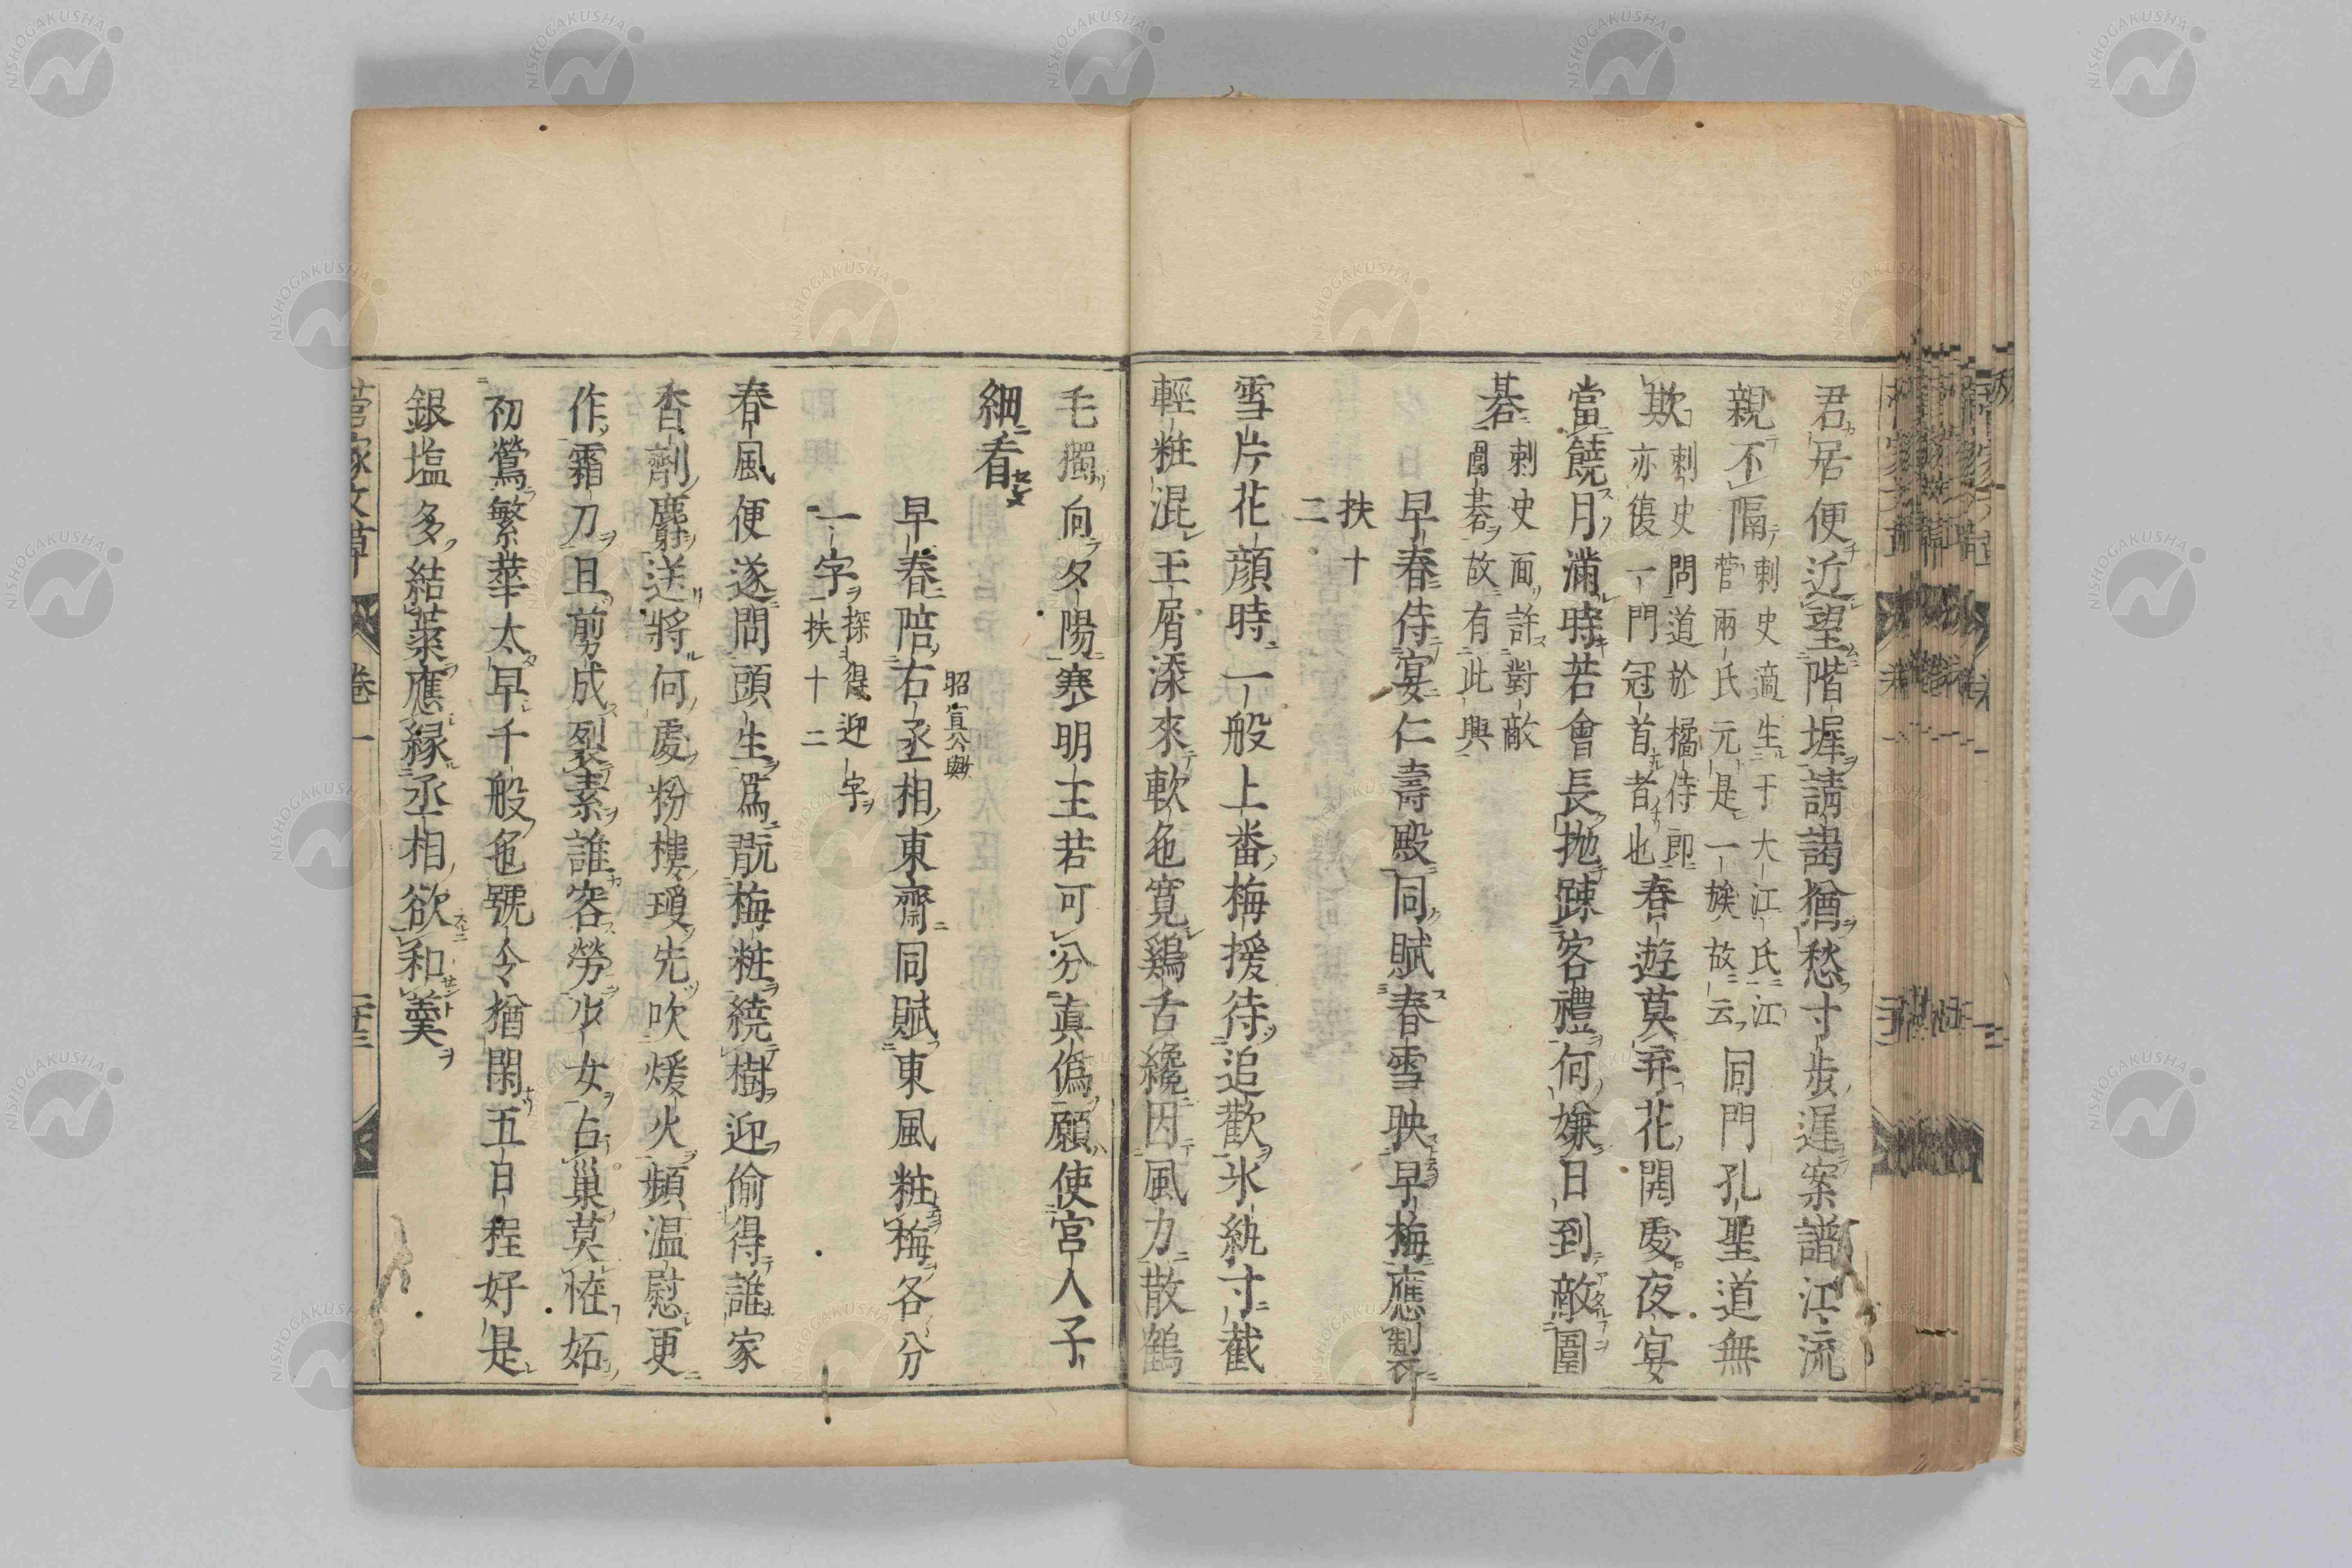 君居便近望階墀請謁猶愁寸歩遲案譜江流
親不隔刺史適生于大江氏江
菅兩氏元是一族故云同門孔聖道無
欺刺史問道於橘侍郎
亦復一門冠首者也春遊莫弃花開處夜宴
當饒月滿時若會長抛踈客禮何嫌日到敵圍
碁刺史面許對敵
圍碁故有此興
早春侍宴仁壽殿同賦春雪映早梅應製
扶十
二
雪片花顔時一般上番梅援待追歡氷紈寸截
輕粧混玉屑添來軟色寛鷄舌纔因風力散鶴
毛獨向夕陽寒明主若可分眞僞願使宮人子
細看
早春陪右丞相東齋同賦東風粧梅各分
昭宣公歟
一字探得迎字
扶十二
春風便逐問頭生爲翫梅粧繞樹迎偷得誰家
香劑麝送將何處粉樓瓊先吹煖火頻温慰更
作霜刀且剪成裂素誰容勞少女占巢莫恠妬
初鶯繁華太早千般色號令猶閑五日程好是
銀塩多結蘂應縁丞相欲和羹
菅家文草 卷一
NISHOGAKUSHA